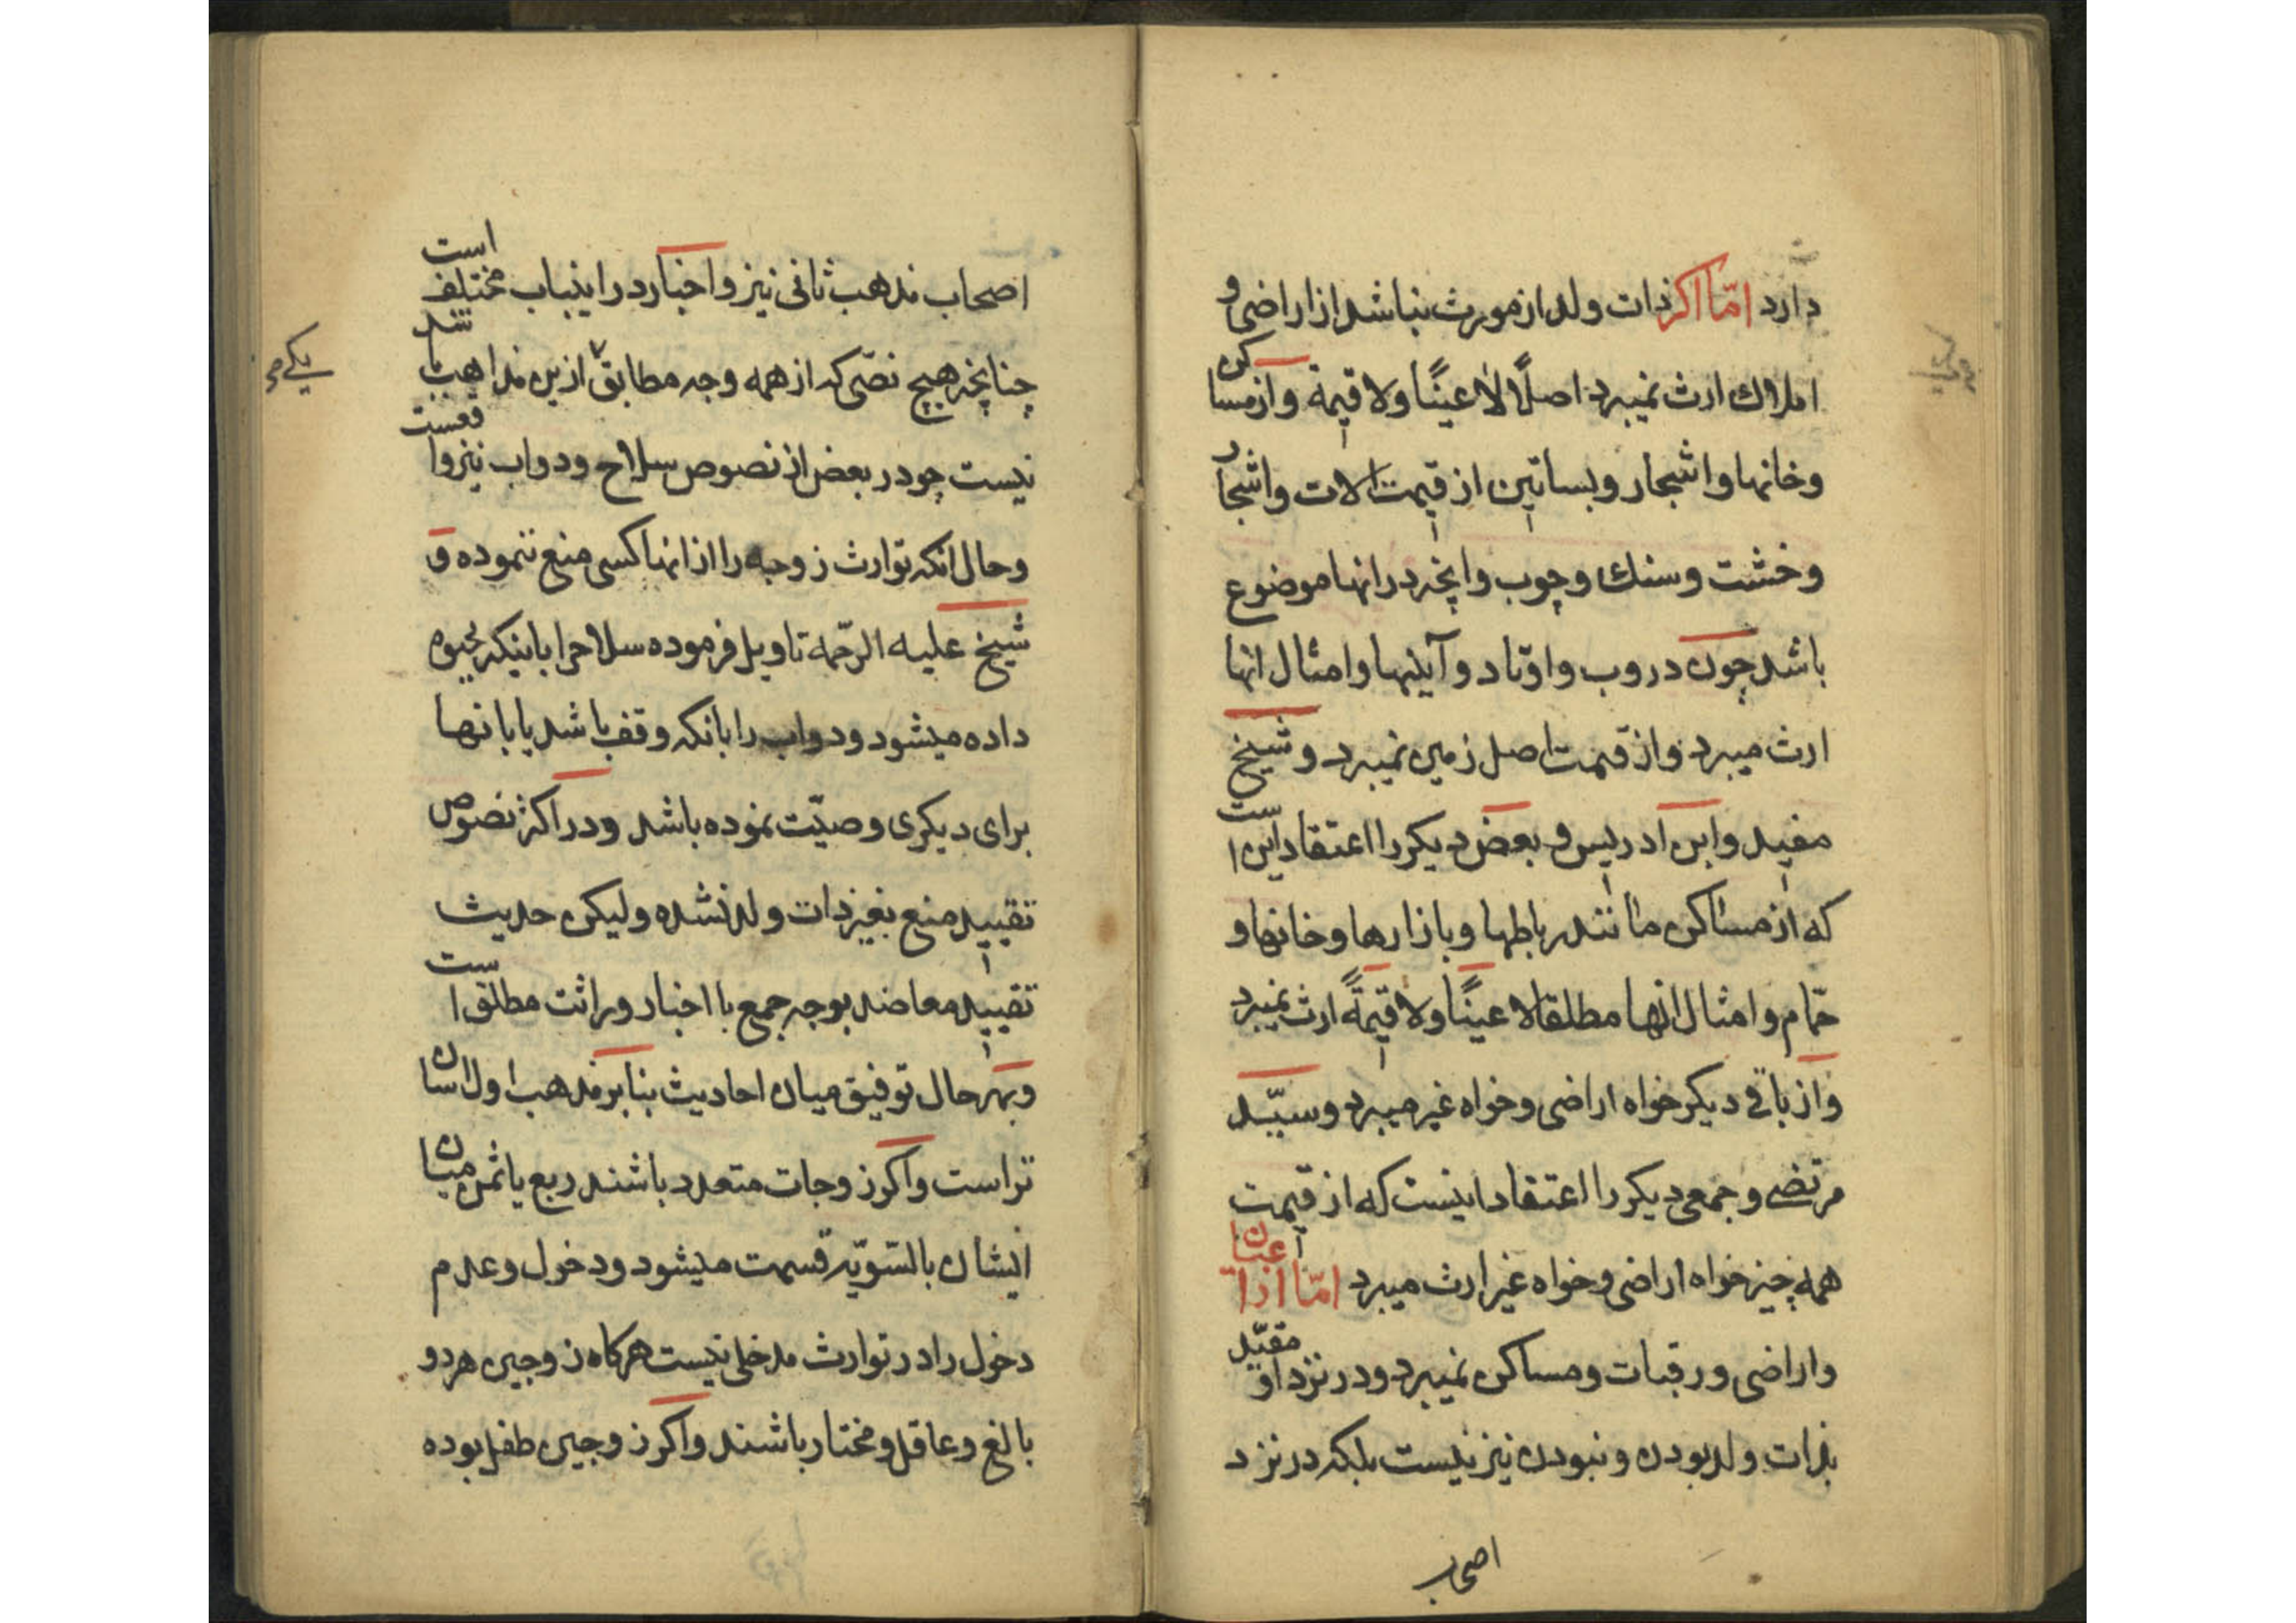 دارد امّا اکر ذات ولد از مورث نباشد از اراضی و
املاک ارث نمیبرد اصلًا لا عینًا ولا قیمة واز مساکن
وخانها واشجار وبساتین از قیمت الات واشجار
وخشت وسنک وچوب وانچه در انها موضوع
باشد چون دروب واوتاد وآلیها وامثال انها
ارث میبرد واز قیمت اصل زمین نمیبرد وشیخ
مفید وابن ادریس و بعض دیکر را اعتقاد این است
که از مساکن مانند رباطها وبازارها وخانها و
حمّام وامثال انها مطلقا لا عینًا ولا قیمةً ارث نمیبرد
واز باقی دیکر خواه اراضی وخواه غیر میبرد وسیّد
مرتضی وجمعی دیکر را اعتقاد اینست که از قیمت
همه چیز خواه اراضی وخواه غیر ارث میبرد امّا از اعیان
واراضی ورقبات ومساکن نمیبرد ودر نزد او مقیّد
بذات ولد بودن ونبودن نیز نیست بلکه در نزد
اصحاب
اصحاب مذهب ثانی نیز واخبار در اینباب مختلف است
چنانچه هیچ نصّی که از همه وجه مطابق ازین مذاهب باشد
یکی
نیست چو در بعض از نصوص سلاح ودواب نیز واقعست
وحال انکه توارث زوجه را از انها کسی منع ننموده و
شیخ علیه الرّحمه تاویل فرموده سلاح را باینکه بحبوه
داده میشود ودواب را بانکه وقف باشد یا بانها
برای دیکری وصیّت نموده باشد ودر اکثر نصوص
تقیید منع بغیر ذات ولد نشده ولیکن حدیث
تقیید معاضد بوجه جمع با اخبار وراثت مطلق است
وبهر حال توفیق میان احادیث بنا بر مذهب اول اسان
تر است واکر زوجات متعدد باشند ربع یا ثمن میان
ایشان بالتسّویّه قسمت میشود ودخول وعدم
دخول را در توارث مدخلی نیست هرکاه زوجین هردو
بالغ وعاقل ومختار باشند واکر زوجین طفل بوده